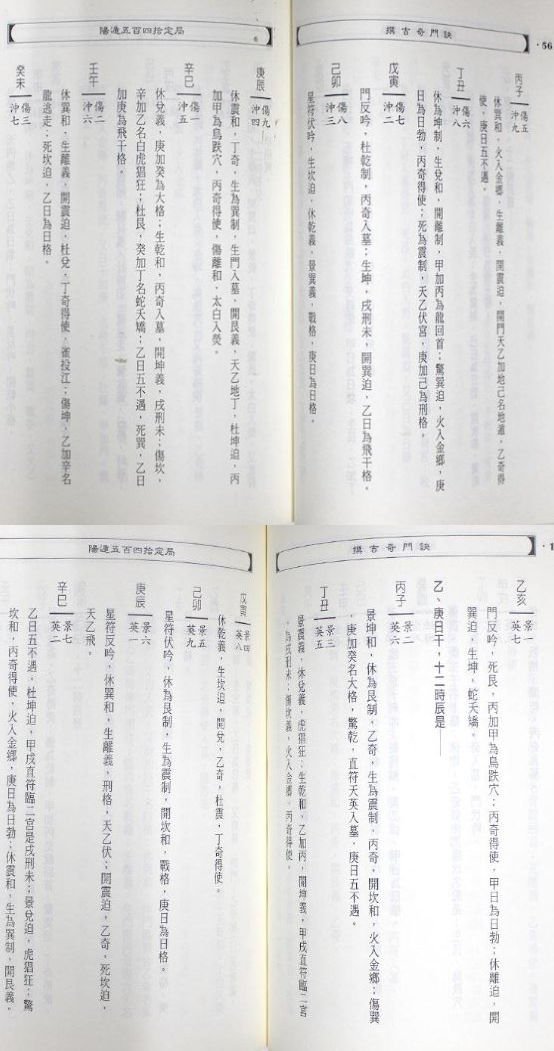 撰吉奇門訣
·56
丙子 傷五 沖九
休巽和，火入金鄉，生離義，開震迫，開門天乙加地己名地遁，乙奇得
使，庚日五不遇。
丁丑 傷六 沖八
休為坤制，生兌和，開離制，甲加丙為龍回首；驚巽迫，火入金鄉，庚
日為日勃，丙奇得使；死為震制，天乙伏宮，庚加己為刑格。
戊寅 傷七 沖二
門反吟，杜乾制，丙奇入墓；生坤，戌刑未，開巽迫，乙日為飛干格。
己卯 傷八 沖三
星符伏吟，生坎迫，休乾義，景巽義，戰格，庚日為日格。
陽遁五百四拾定局
庚辰 傷九 沖四
休震和，丁奇，生為巽制，生門入墓，開艮義，天乙地丁，杜坤迫，丙
加甲為鳥跌穴，丙奇得使，傷離和，太白入熒。
辛巳 傷一 沖五
休兌義，庚加癸為大格；生乾和，丙奇入墓，開坤義，戌刑未；傷坎，
辛加乙名白虎猖狂；杜艮，癸加丁名蛇夭矯；乙日五不遇，死巽，乙日
加庚為飛干格。
壬午 傷二 沖六
休巽和，生離義，開震迫，杜兌，丁奇得使，雀投江；傷坤，乙加辛名
龍逃走；死坎迫，乙日為日格。
癸未 傷三 沖七
撰吉奇門訣
乙亥 景一 英七
門反吟，死艮，丙加甲為鳥跌穴；丙奇得使，甲日為日勃；休離迫，開
巽迫，生坤，蛇夭矯。
乙、庚日干，十二時辰是——
丙子 景二 英六
景坤和，休為艮制，乙奇，生為震制，丙奇，開坎和，火入金鄉；傷巽
，庚加癸名大格，驚乾，直符天英入墓，庚日五不遇。
丁丑 景三 英五
景震義，休兌義，虎猖狂；生乾和，乙加丙，開坤義，甲戌直符臨二宮
，為戌刑未；傷坎義，火入金鄉，丙奇得使。
陽遁五百四拾定局
戊寅 景四 英八
休乾義，生坎迫，開兌，乙奇，杜震，丁奇得使。
己卯 景五 英九
星符伏吟，休為艮制，生為震制，開坎和，戰格，庚日為日格。
庚辰 景六 英一
星符反吟，休巽和，生離義，刑格，天乙伏；開震迫，乙奇，死坎迫，
天乙飛。
辛巳 景七 英二
乙日五不遇，杜坤迫，甲戌直符臨二宮是戌刑未；景兌迫，虎猖狂；驚
坎和，丙奇得使，火入金鄉，庚日為日勃；休震和，生為巽制，開艮義。